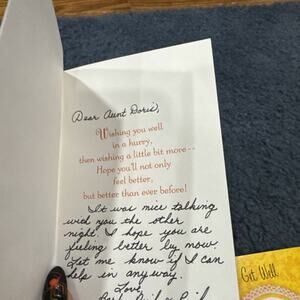 Dear Aunt Doris,
Wishing you well
in a hurry,
then wishing a little bit more --
Hope you'll not only
feel better,
but better than ever before!
It was nice talking
with you the other
night. I hope you are
feeling better by now.
Let me know if I can
help in any way.
Love
Get Well